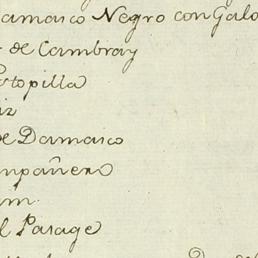 Damasco Negro con Galo
de Cambray
de Damasco
ompañero
el Parage